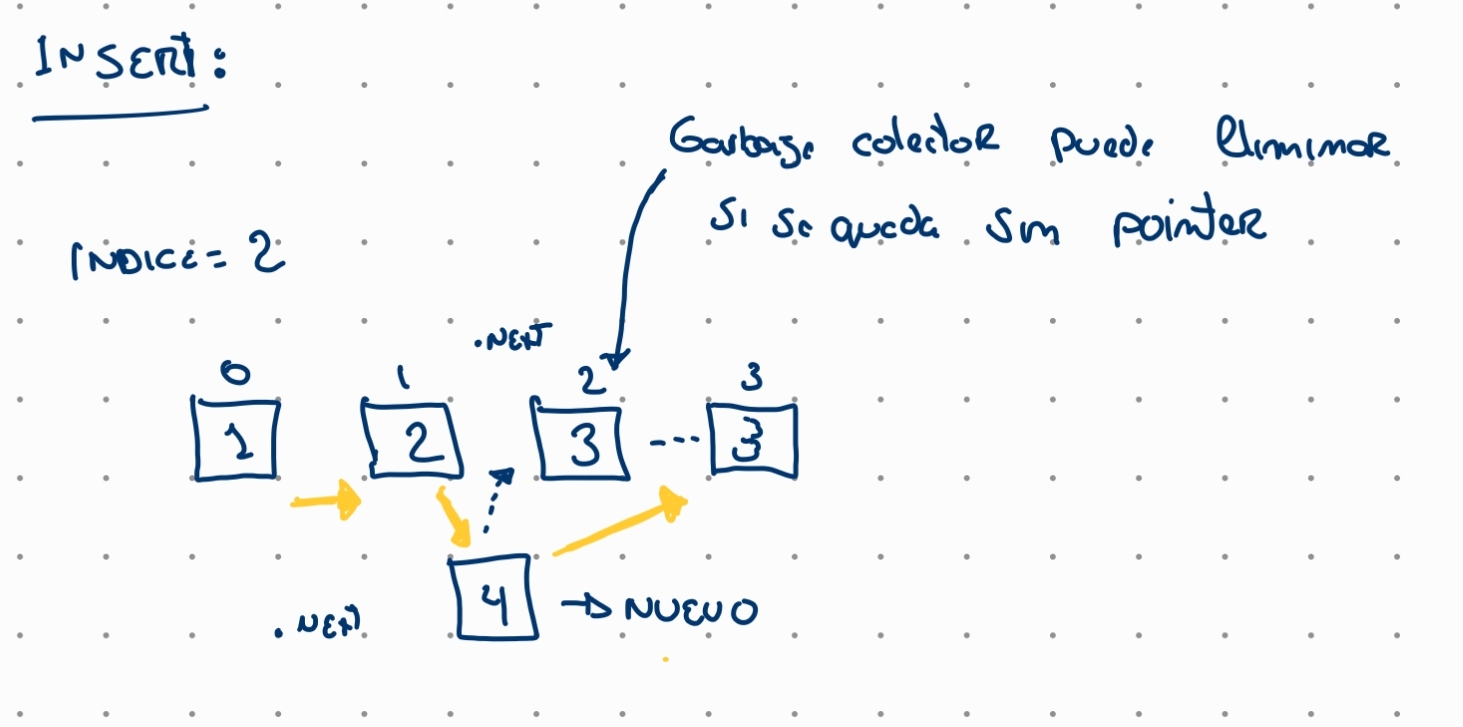 INSERT:
Garbage colector puede Eliminar
si se queda sin pointer
INDICE = 2
.NEXT
0 1 2 3
1 2 3 3
4 → NUEVO
.NEXT